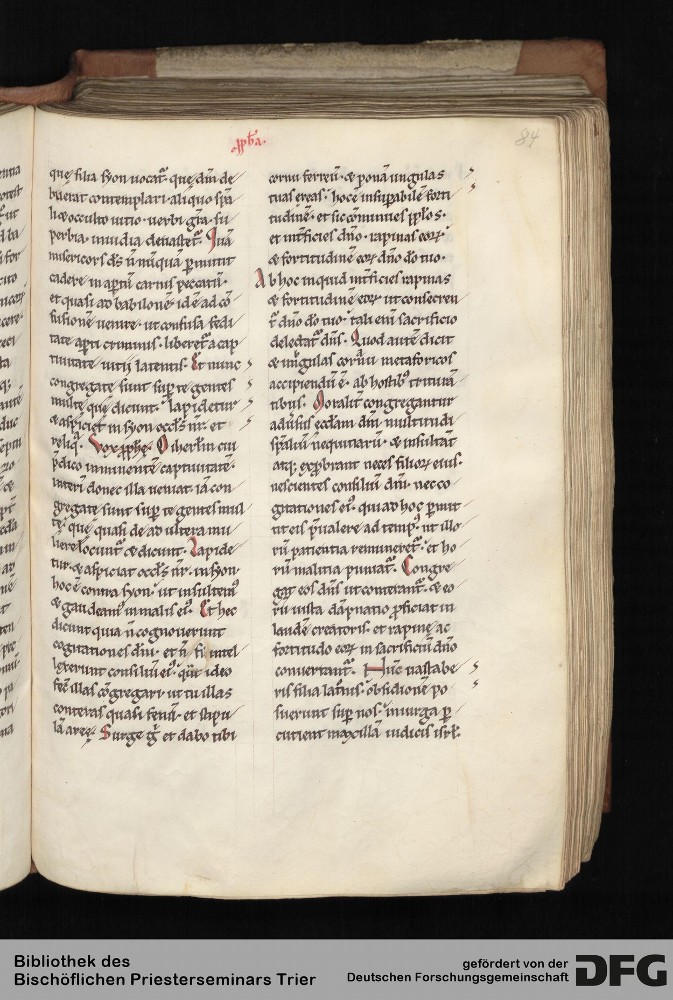 84
quę filia syon uocat̄. quę dn̄m de
buerat contemplari. aliquo sp̄a
li & occulto uitio. uerbi gr̄a. su
perbia. inuidia deuastet̄. Nā
misericors dn̄s n̄ nūquā p̄mittit
cadere in aptū carnis peccatū.
et quasi ad babilonē. id ē ad cō
fusionē uenire. ut confusa fedi
tate apti criminis. liberet̄ a cap
tiuitate uitii latentis. Et nunc
congregate sunt sup te gentes
multę quę dicunt. lapidetur
& aspiciet in syon oculs n̄r. et
reliq̄. Vox pphę. O ihrl̄m cui
p̄dico imminentē captiuitatē.
interī donec illa ueniat. iā con
gregate sunt sup te gentes mul
tę. quę quasi de adultera mu
liere locunt̄ & dicunt. Lapide
tur. & aspiciat oculs n̄r. in syon.
hoc ē contra syon. ut insultem᾽
& gaudeam᾽ in malis ei᾽. Et hec
dicunt quia n̄ cognouerunt
cogitationes dn̄i. et n̄ intel
lexerunt consiliū ei᾽. qm̄ ideo
fec̄ illas cōgregari. ut tu illas
conteras quasi fenū. et stipu
lā areę. Surge g̊ et dabo tibi
cornu ferreū. & ponā ungulas
tuas ereas. hoc ē insupabilē forti
tudinē. et sic cōminues pplos.
et int̄ficies dn̄o. rapinas eoꝝ.
& fortitudinē eoꝝ dn̄o do tuo.
Ab hoc inquid int̄ficies rapinas
& fortitudinē eoꝝ ut consecren
t̄ dn̄o do tuo. tali eni sacrificio
delectat̄ dn̄s. Quod autē dicit
& ungulas cornūū metaforicos
accipiendū ē. ab hostib᾽ triturā
tibus. Moralit̄ congregantur
aduersus ecclām dn̄i multitudi
sp̄aliū nequitiarū. & insultat
atq; exp̄brant neces filioꝝ eius.
nescientes consiliū dn̄i. nec co
gitationes ei᾽. qui ad hoc p̄mit
tit eis p̄ualere ad temp᾽. ut illo
rū patientia remuneret̄. et ho
rū malitia puniat̄. Congre
gat eos dn̄s ut conterant̄. & eo
rū iusta dāpnatio pficiat in
laudē creatoris. et rapinę ac
fortitudo eoꝝ in sacrificiū dn̄o
conuertant̄. Nūc uastabe
ris filia latronis. obsidionē po
suerunt sup nos. in uirga p
cutient maxillā iudicis isrl̄.
Bibliothek des
Bischöflichen Priesterseminars Trier
gefördert von der
Deutschen Forschungsgemeinschaft
DFG